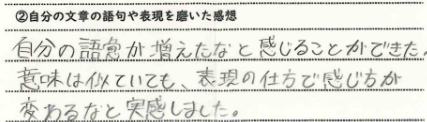 ②自分の文章の語句や表現を磨いた感想
自分の語彙が増えたなと感じることができた。
意味は似ていても、表現の仕方で感じ方が
変わるなと実感しました。